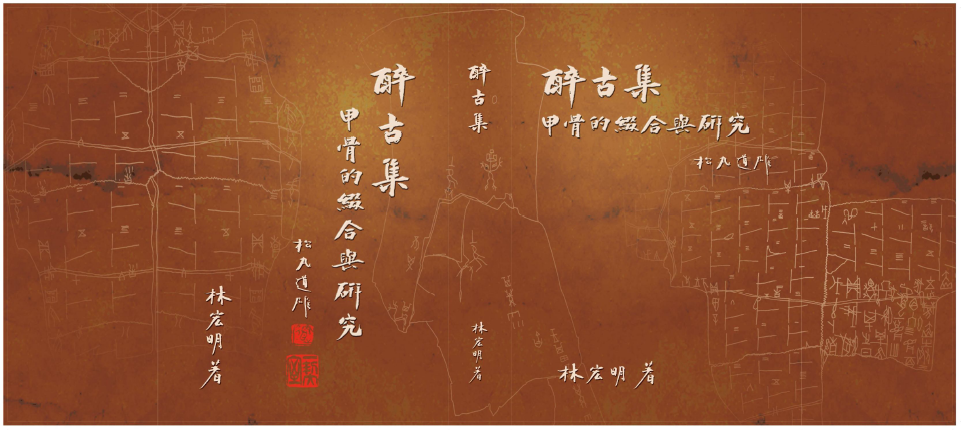 醉古集
甲骨的綴合與研究
松丸道雄
林宏明 著
醉古集
林宏明 著
醉古集
甲骨的綴合與研究
松丸道雄
林宏明 著